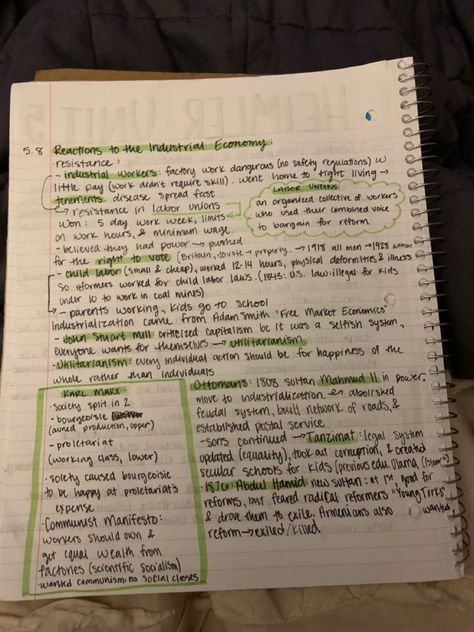 5.8 Reactions to the Industrial Economy:
- resistance:
- industrial workers: factory work dangerous (no safety regulations) w
little pay (work didn't require skill). went home to tight living →
tenements. disease spread fast
→ resistance in labor unions
won: 5 day work week, limits
on work hours, & minimum wage
- believed they had power → pushed
for the right to vote (Britain, house → property. → 1918 all men → 1928 women
LABOR UNIONS
an organized collective of workers
who used their combined voice
to bargain for reform
- child labor (small & cheap), worked 12-14 hours, physical deformities & illness
so reformers worked for child labor laws. (1843: U.S. law: illegal for kids
under 10 to work in coal mines)
- parents working, kids go to school
Industrialization came from Adam Smith "Free Market Economics"
- John Stuart Mill criticized capitalism bc it was a selfish system,
everyone wants for themselves → utilitarianism
- Utilitarianism: every individual action should be for happiness of the
whole rather than individuals
KARL MARX
- society split in 2
- bourgeoisie
(owned production, upper)
- proletariat
(working class, lower)
- society caused bourgeoisie
to be happy at proletariat's
expense
- Communist Manifesto:
workers should own &
get equal wealth from
factories (scientific socialism)
- wanted communism: no social classes
Ottomans: 1808 sultan Mahmud II in power,
move to industrialization. abolished
feudal system, built network of roads, &
established postal service
- sons continued → Tanzimat: legal system
updated (equality), took out corruption, & created
secular schools for kids (previous edu. Ulama, (Islamic)
- 1876: Abdul Hamid new sultan: at 1st, good for
reforms, but feared radical reformers "Young Turks"
& drove them to exile. Armenians also wanted
reform → exiled/killed
HEIMLER UNIT 5